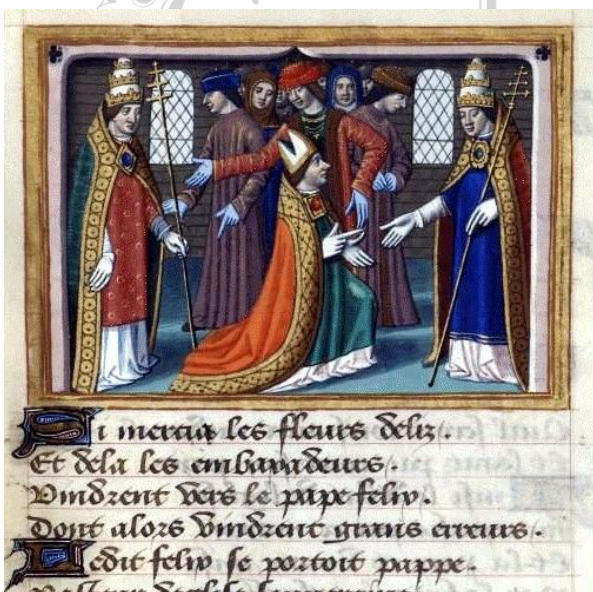 Si mercia les fleurs deliz.
Et dela les embaxadeurs.
Vindrent vers le pape felix.
Dont alors vindrent grans erreurs.
Ledit felix se portoit pappe.